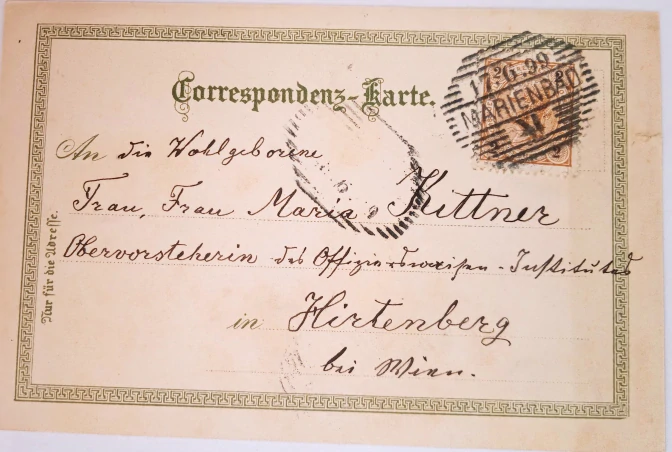 Correspondenz-Karte.
17.6.99
MARIENBAD
XI
2 2
An die Wohlgeborene
Frau, Frau Maria Kittner
Obervorsteherin des Offizierswaisen-Institutes
in Hirtenberg
bei Wien.
Nur für die Adresse.